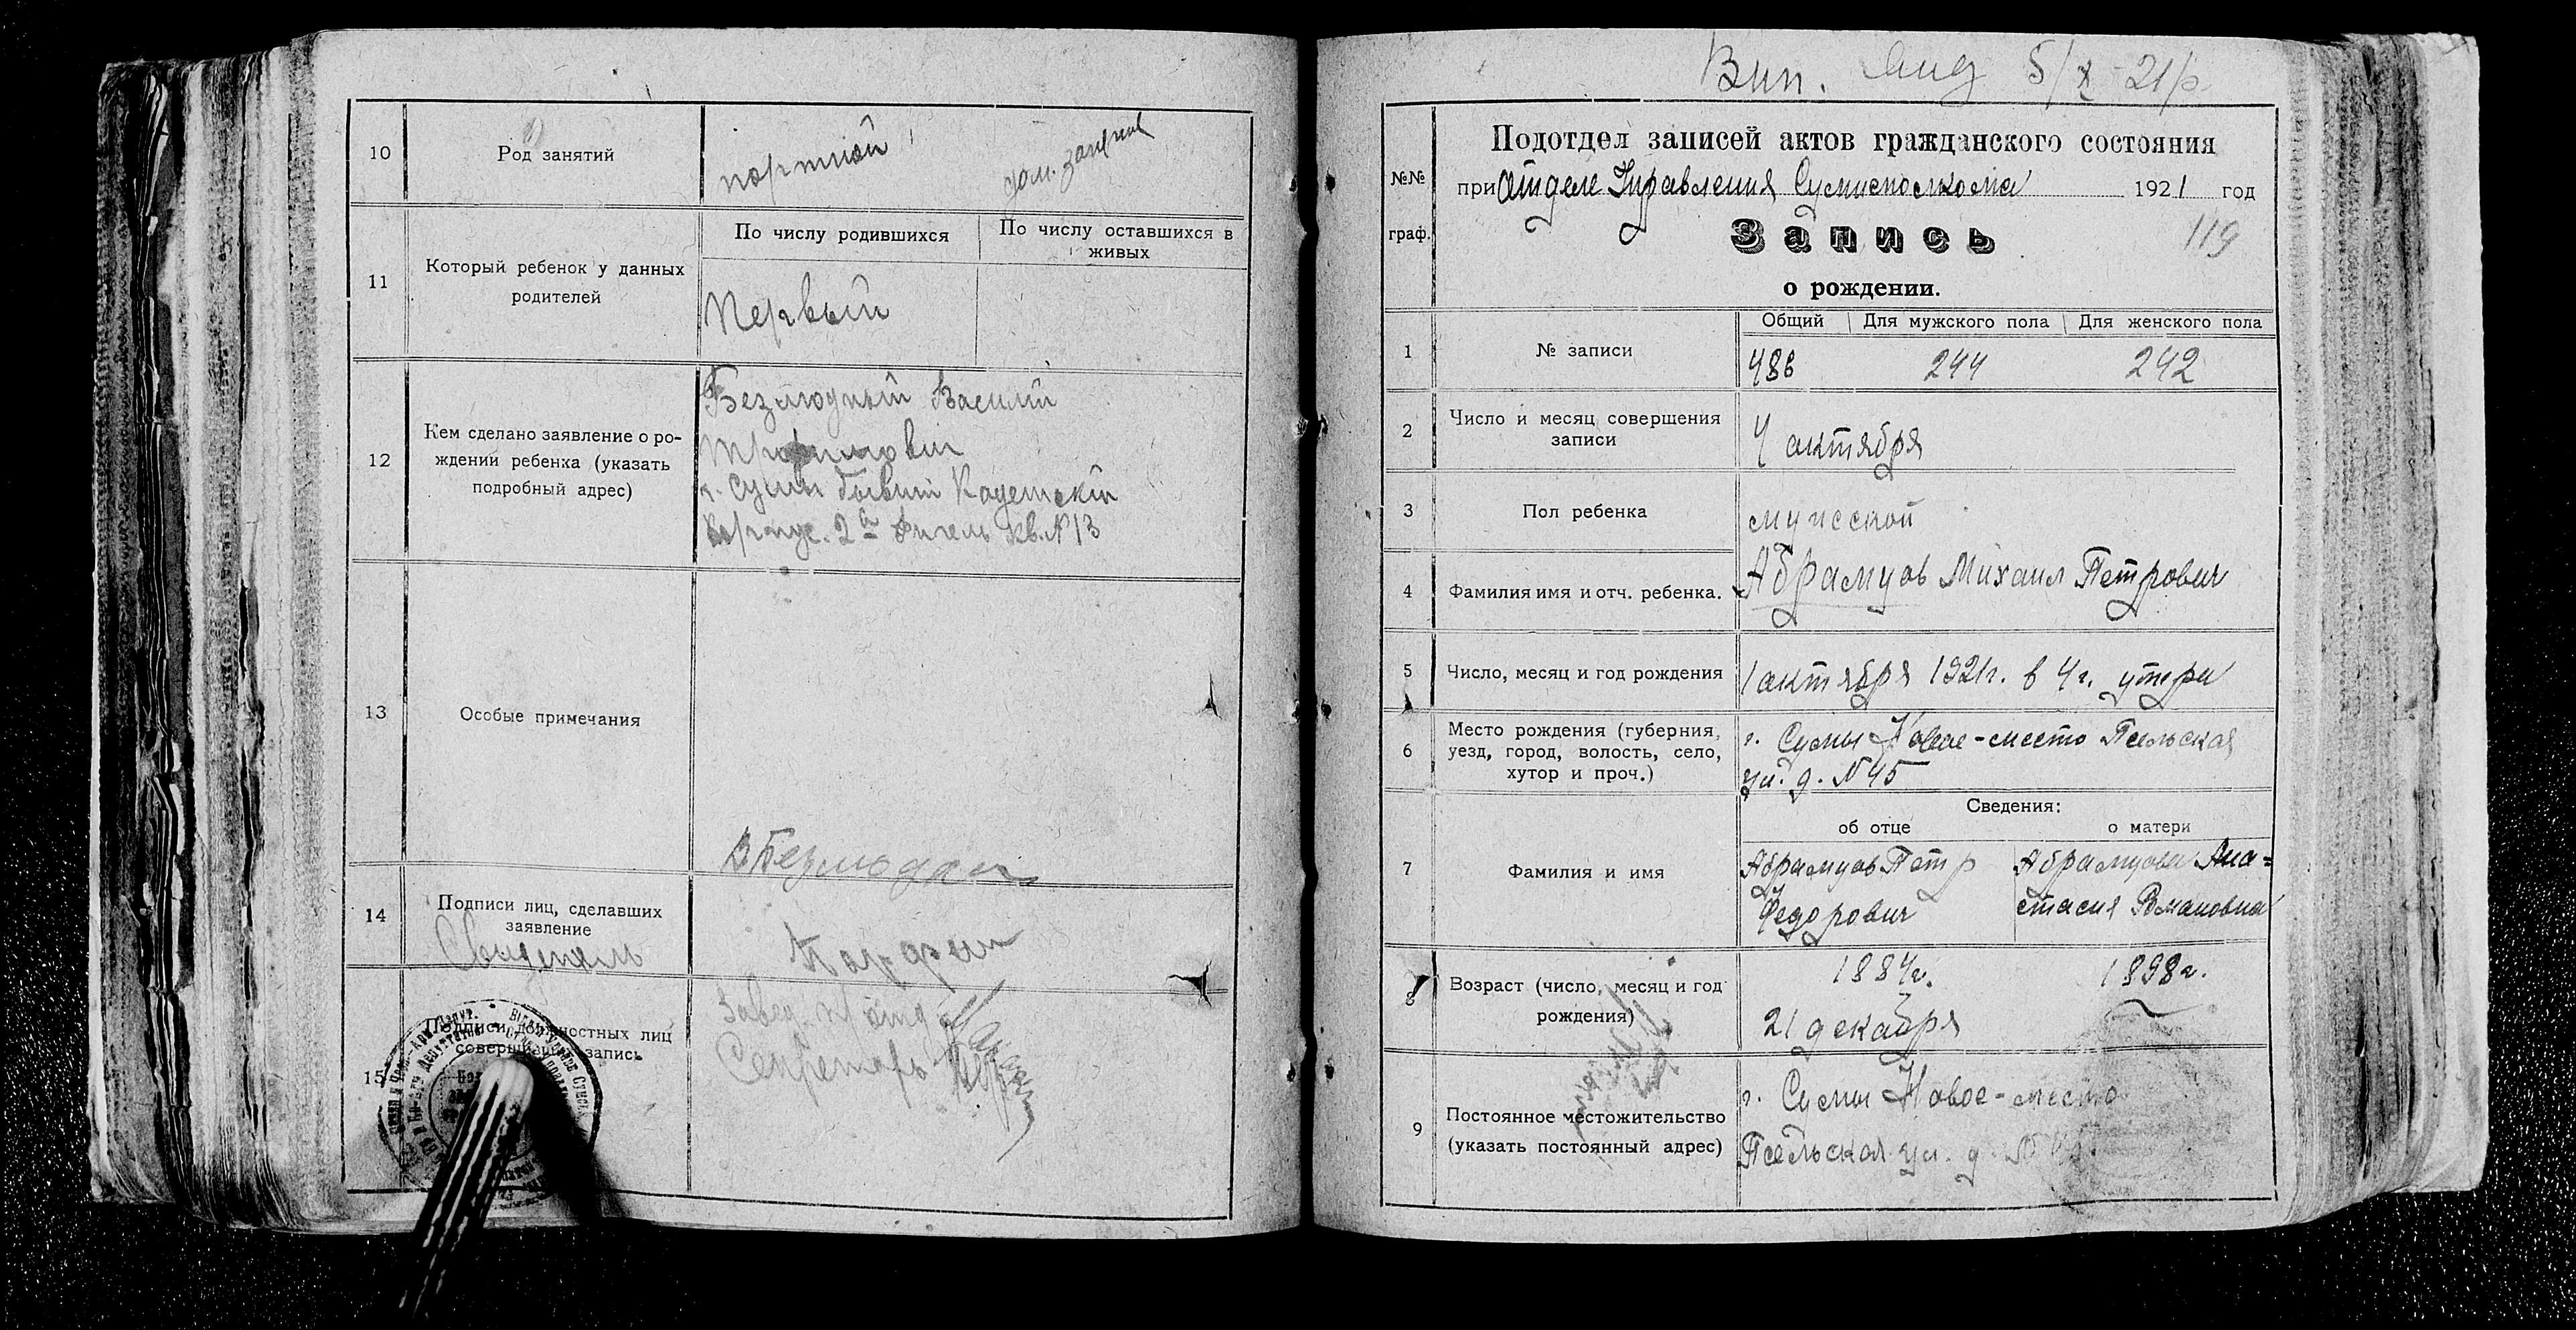 10
Род занятий
портной
дом. занятие
11
Который ребенок у данных
родителей
По числу родившихся
По числу оставшихся в
живых
Первый
12
Кем сделано заявление о ро-
ждении ребенка (указать
подробный адрес)
Безлюдный Василий
Трофимович
г. Сумы бывший Кадетский
Корпус. 2й флигель кв. №13
13
Особые примечания
14
Подписи лиц, сделавших
заявление
Свидетель
В Безлюдный
15
Подписи должностных лиц
совершивших запись
Завед. П отд
Секретарь
Вип.
5/X 21р
№№
граф.
Подотдел записей актов гражданского состояния
при Отделе Управления Сумисполкома 1921 год
Запись
119
о рождении.
1
№ записи
Общий
Для мужского пола
Для женского пола
486
244
242
2
Число и месяц совершения
записи
4 октября
3
Пол ребенка
мужской
4
Фамилия имя и отч. ребенка.
Абрамцов Михаил Петрович
5
Число, месяц и год рождения
1 октября 1921г. в 4 ч. утра
6
Место рождения (губерния,
уезд, город, волость, село,
хутор и проч.)
г. Сумы Новое-место Псельская
ул. д. №45
7
Фамилия и имя
Сведения:
об отце
о матери
Абрамцов Петр
Федорович
Абрамцова Ана=
стасия Романовна
8
Возраст (число, месяц и год
рождения)
1884г.
21 декабря
1898г.
9
Постоянное местожительство
(указать постоянный адрес)
г. Сумы Новое-место
Псельская ул. д. № 45